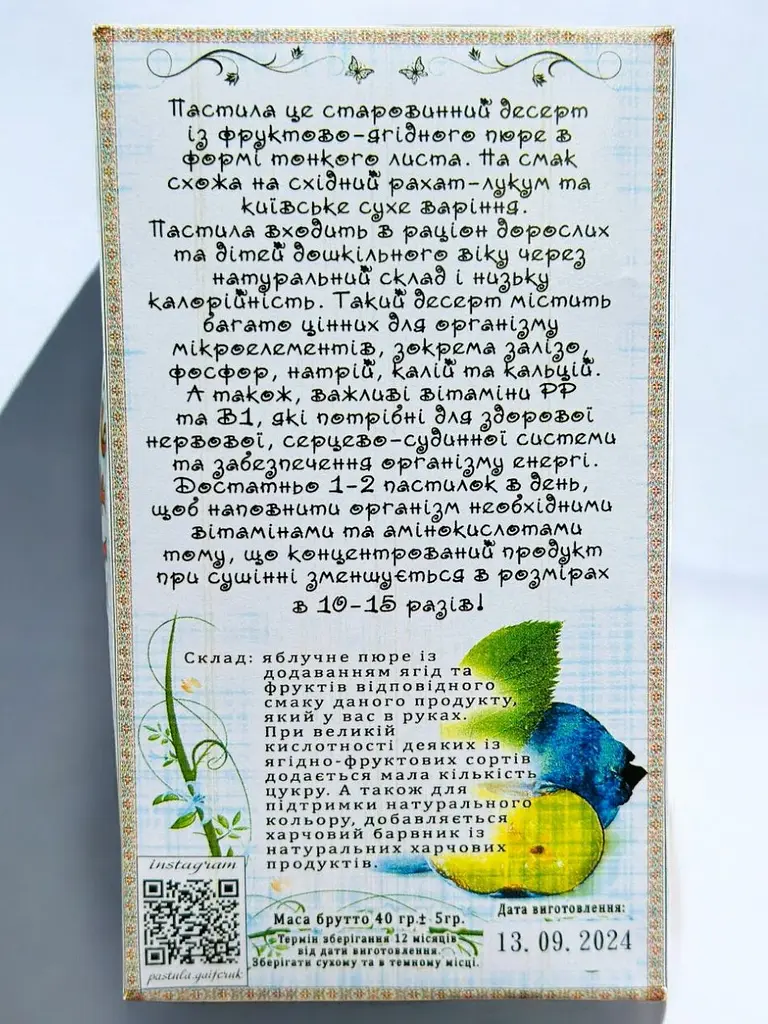 Пастила це старовинний десерт
із фруктово-ягідного пюре в
формі тонкого листа. На смак
схожа на східний рахат-лукум та
київське сухе варіння.
Пастила входить в раціон дорослих
та дітей дошкільного віку через
натуральний склад і низьку
калорійність. Такий десерт містить
багато цінних для організму
мікроелементів, зокрема залізо,
фосфор, натрій, калій та кальцій.
А також, важливі вітаміни РР
та В1, які потрібні для здорової
нервової, серцево-судинної системи
та забезпечення організму енергі.
Достатньо 1-2 пастилок в день,
щоб наповнити організм необхідними
вітамінами та амінокислотами
тому, що концентрований продукт
при сушінні зменшується в розмірах
в 10-15 разів!
Склад: яблучне пюре із
додаванням ягід та
фруктів відповідного
смаку даного продукту,
який у вас в руках.
При великій
кислотності деяких із
ягідно-фруктових сортів
додається мала кількість
цукру. А також для
підтримки натурального
кольору, добавляється
харчовий барвник із
натуральних харчових
продуктів.
instagram
pastula.gaifcruk
Маса брутто 40 гр.± 5гр.
Термін зберігання 12 місяців
від дати виготовлення.
Зберігати сухому та в темному місці.
Дата виготовлення:
13. 09. 2024